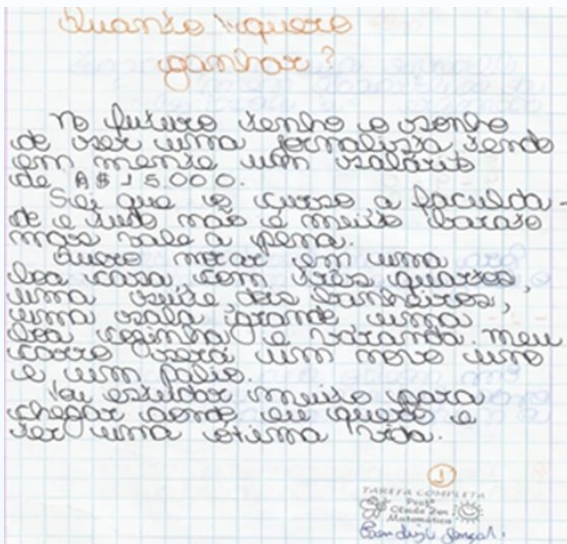 Quanto quero
ganhar?
No futuro tenho o sonho
de ser uma jornalista, tendo
em mente um salário
de R$ 15.000.
Sei que o curso a faculda-
de e tudo não é muito barato
mas vale a pena.
Quero morar em uma
boa casa, com três quartos,
uma suíte, dois banheiros,
uma sala grande uma
boa cozinha e varanda. Meu
carro será um novo uno
e um pálio.
Vou estudar muito para
chegar aonde eu quero e
ter uma otima vida.
1
TAREFA COMPLETA
Profª
Matemática